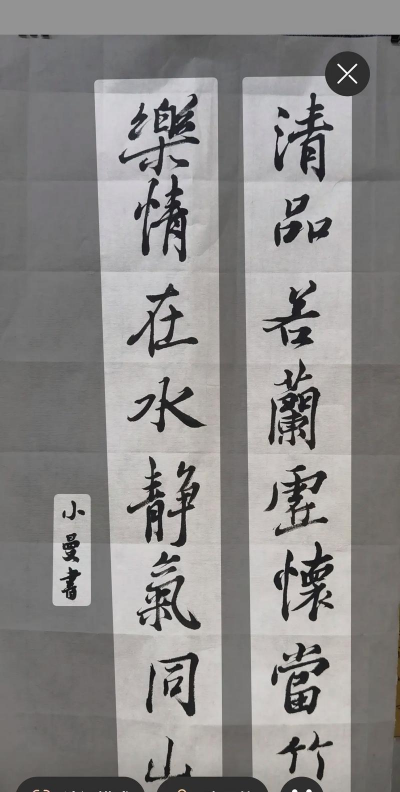 清品若蘭虛懷當竹
樂情在水靜氣同山
小曼書